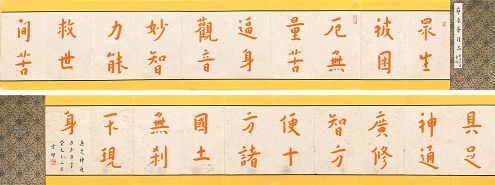 眾生
被困
厄無
量苦
逼身
觀音
妙智
力能
救世
間苦
具足
神通
廣修
智方
便十
方諸
國土
無刹
不現
身